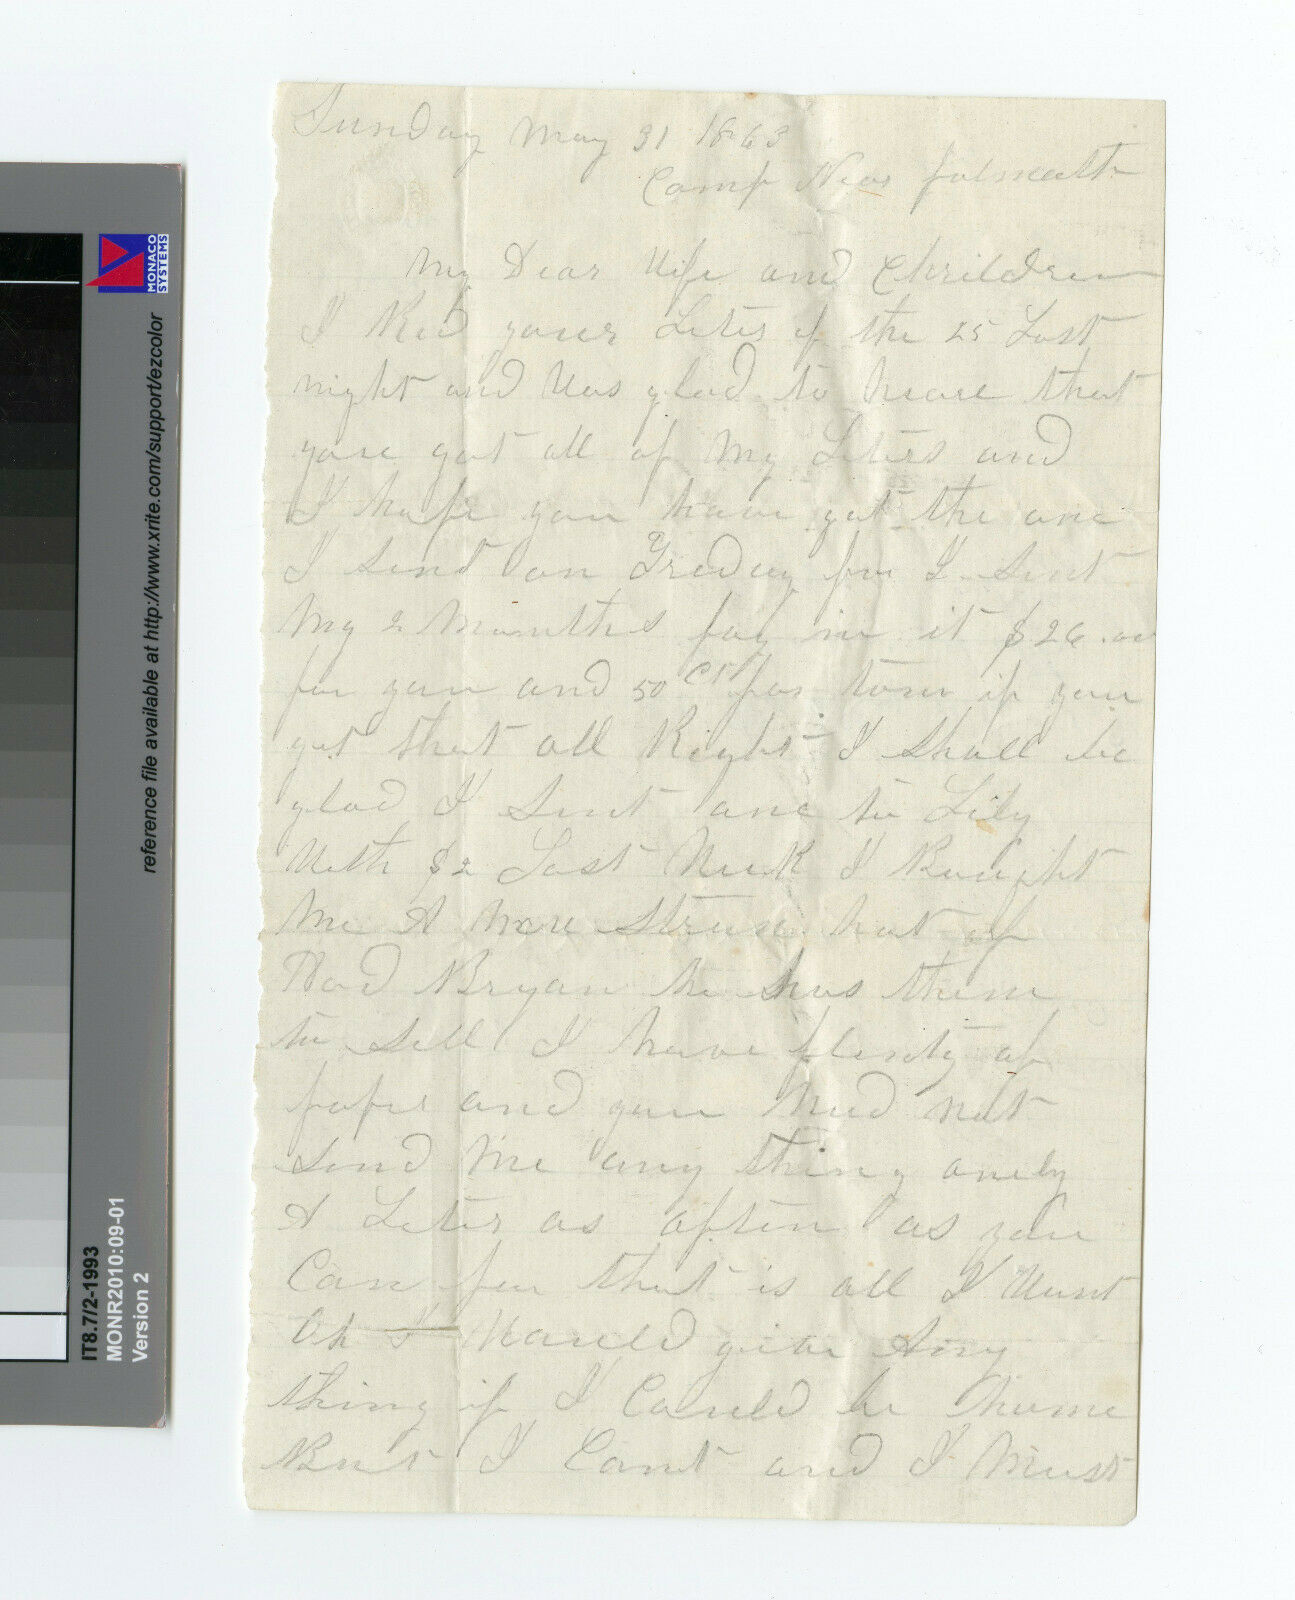 Sunday May 31 1863
Camp Near falmeath
My Dear Wife and Children
I Recd youer Leters of the 25 Last
night and Was glad to heare that
youe got all of My Leters and
I hope you have got the one
I send on Freday for I Sent
My 2 Months pay in it $26.00
for you and 50 cts for tom if you
get that all Right I Shall be
glad I Sent one to Lily
With $2 Last Week I Bought
Me A more Straw hat of
Thod Bryan he has them
to Sell I have plenty of
paper and you Need not
Send Me any thing onely
A Leter as often as you
Can for that is all I Want
Oh I Would give Any
thing if I Could be home
But I Cant and I Must
MONACO
SYSTEMS
reference file available at http://www.xrite.com/support/ezcolor
IT8.7/2-1993
MONR2010:09-01
Version 2